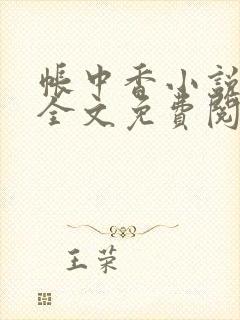 帳中香小說
全文免費閱
王荣